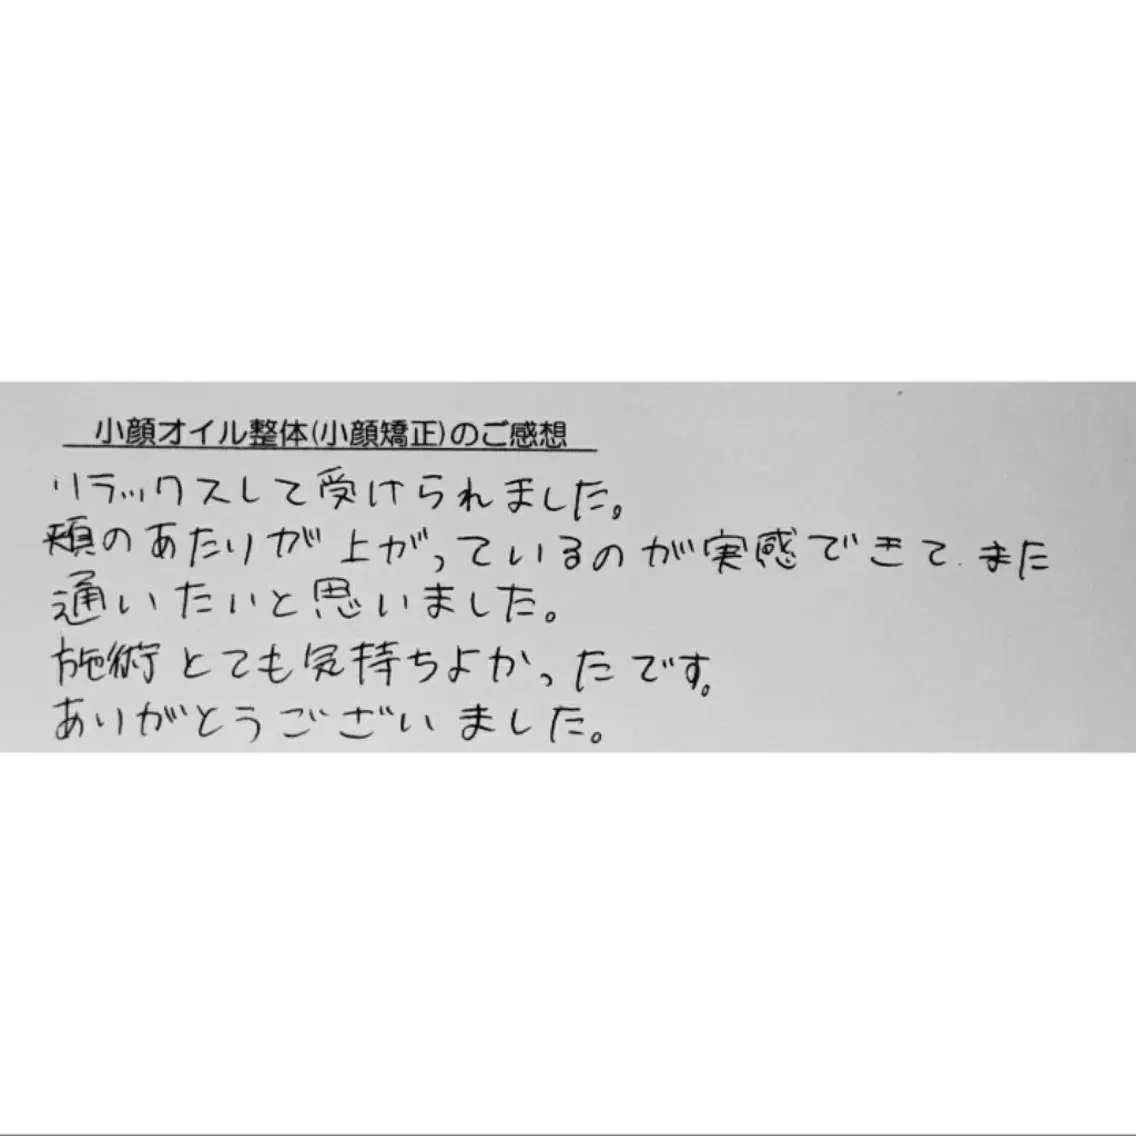 小顔オイル整体(小顔矯正)のご感想
リラックスして受けられました。
頬のあたりが上がっているのが実感できて、また
通いたいと思いました。
施術とても気持ちよかったです。
ありがとうございました。